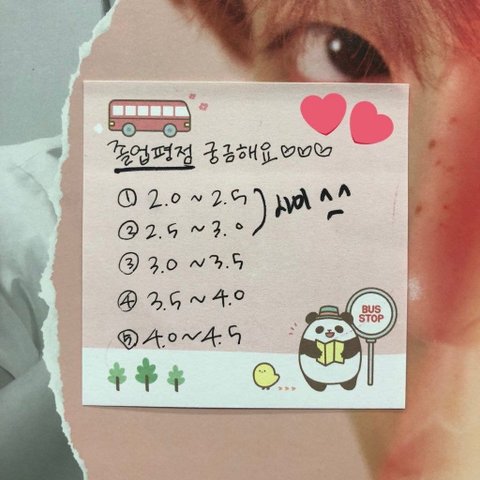 졸업평점 궁금해요♡♡♡
① 2.0 ~ 2.5
② 2.5 ~ 3.0
사이 ^^
③ 3.0 ~ 3.5
④ 3.5 ~ 4.0
⑤ 4.0 ~ 4.5
BUS
STOP